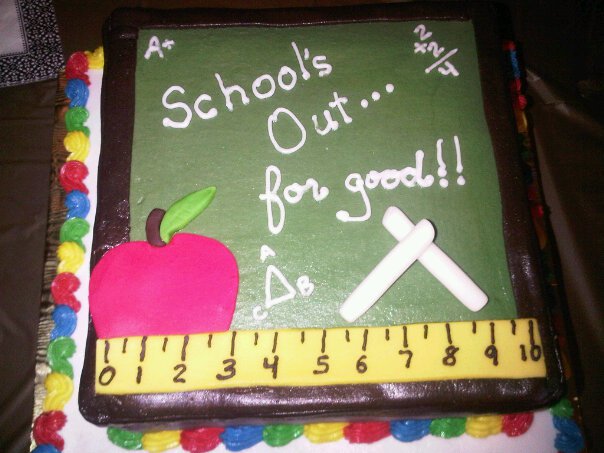 A+
2
x2
4
School's
Out...
for good!!
A
B
C
0 1 2 3 4 5 6 7 8 9 10